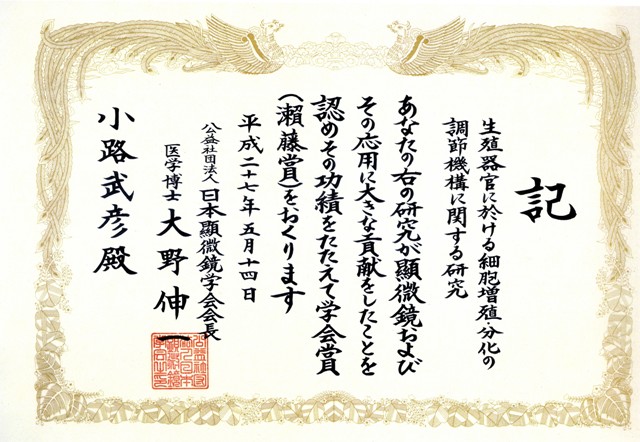 記
生殖器官に於ける細胞増殖・分化の
調節機構に関する研究
あなたの右の研究が顕微鏡および
その応用に大きな貢献をしたことを
認めその功績をたたえて学会賞
(瀬藤賞)をおくります
平成二十七年五月十四日
公益社団法人日本顕微鏡学会会長
医学博士 大野伸一
小路武彦殿